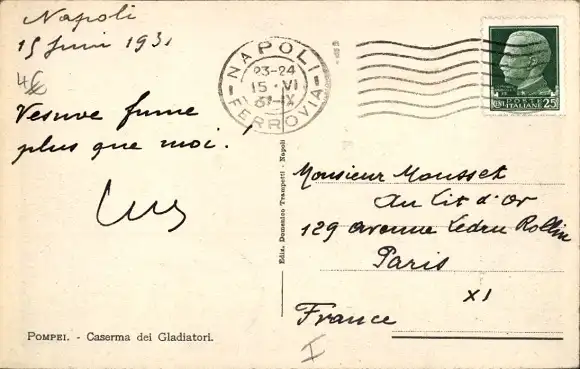 Napoli
15 Juin 1931
Vesuve fume
plus que moi.
NAPOLI
23-24
15 · VI
31-IX
FERROVIA
POSTE
ITALIANE
25
Monsieur Mousset
Au Lit d'Or
129 avenue Ledru Rollin
Paris
XI
France
I
Ediz. Domenico Trampetti - Napoli
POMPEI. - Caserma dei Gladiatori.